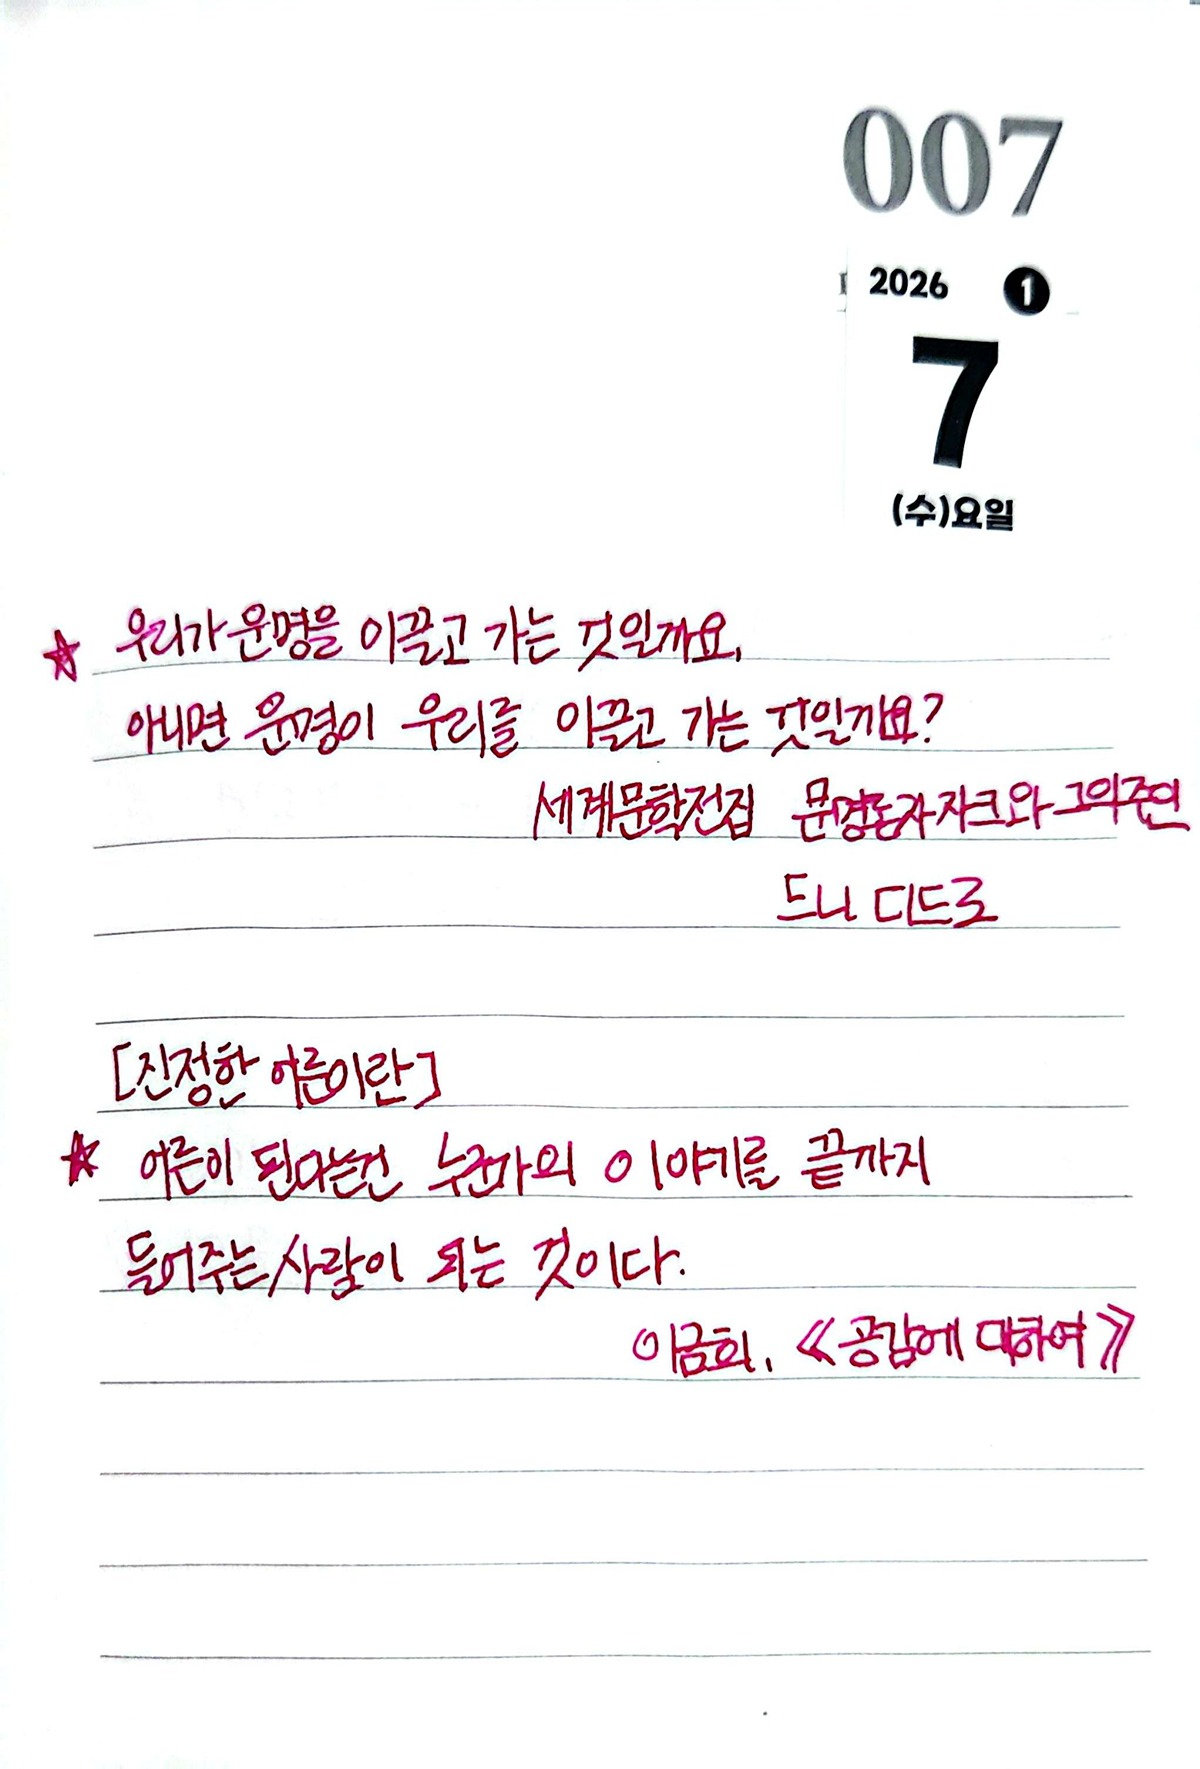 007
2026 1
7
(수)요일
★ 우리가 운명을 이끌고 가는 것일까요,
아니면 운명이 우리를 이끌고 가는 것일까요?
세계문학전집 자크와 그의주인
드니 디드로
[진정한 어른이란]
★ 어른이 된다는건 누군가의 이야기를 끝까지
들어주는 사람이 되는 것이다.
이금희, 《공감에 대하여》